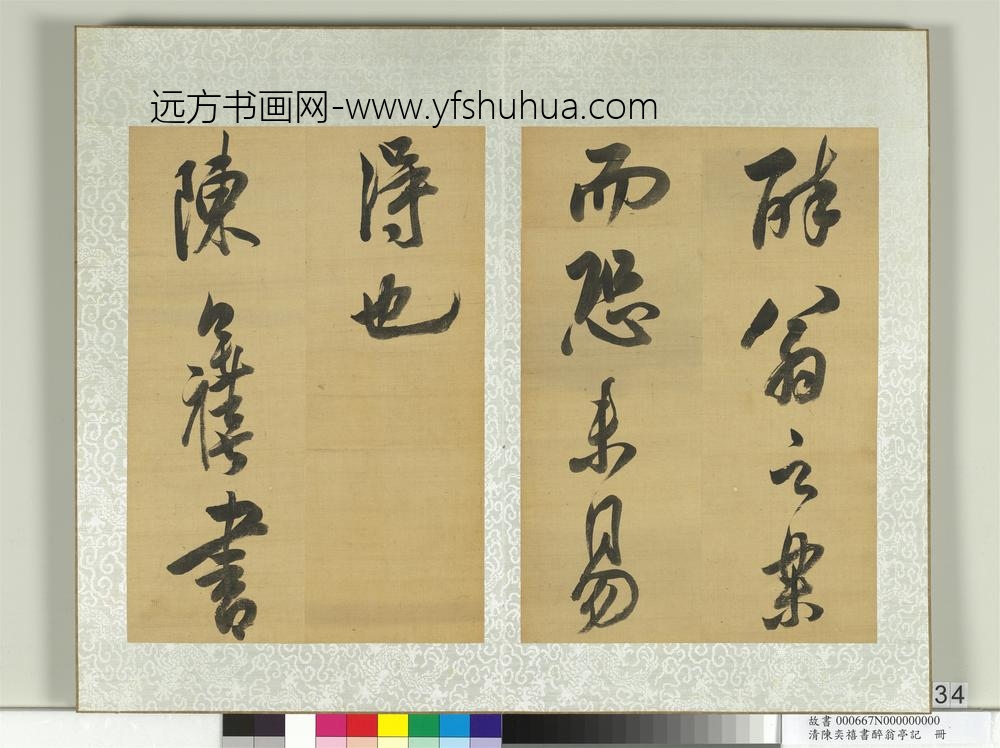 远方书画网-www.yfshuhua.com
醉翁之樂
而恐未易
得也
陳奕禧書
34
故書 000667N000000000
清陳奕禧書醉翁亭記 冊